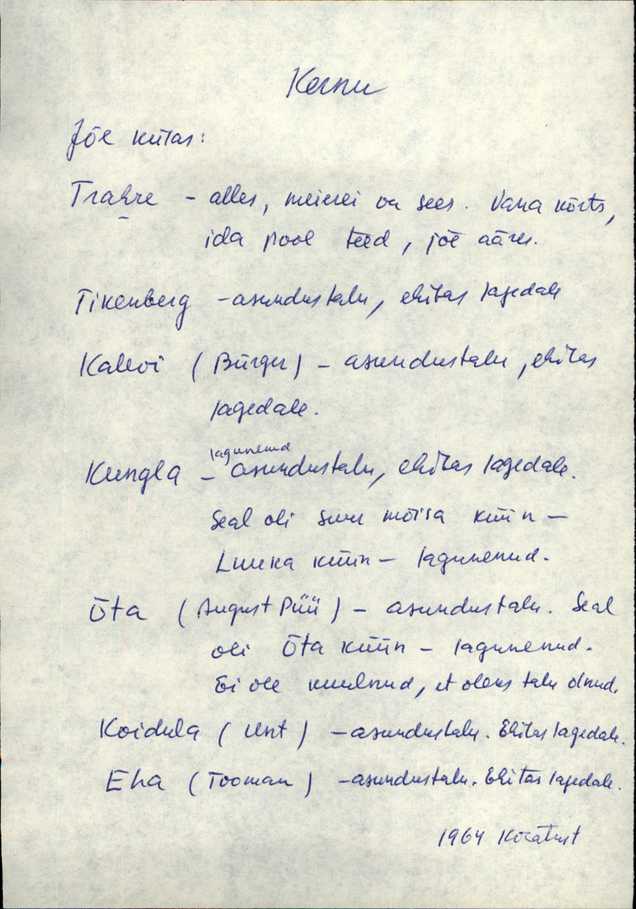 Kernu
Jõe kutas:
Trahre - alles, meierei on sees. Vana kõrts,
ida pool teed, jõe ääres.
Tikenberg - asundustalu, ehitas lagedale
Kalevi (Bürger) - asundustalu, ehitas
lagedale.
lagunenud
Kungla - asundustalu, ehitas lagedale.
Seal oli suur mõisa küün -
küün - lagunenud.
Õta (August Püü) - asundustalu. Seal
oli Õta küün - lagunenud.
Ei ole kuulnud, et oleks talu olnud.
Koidula (Unt) - asundustalu. Ehitas lagedale.
Eha (Tooman) - asundustalu. Ehitas lagedale.
1964